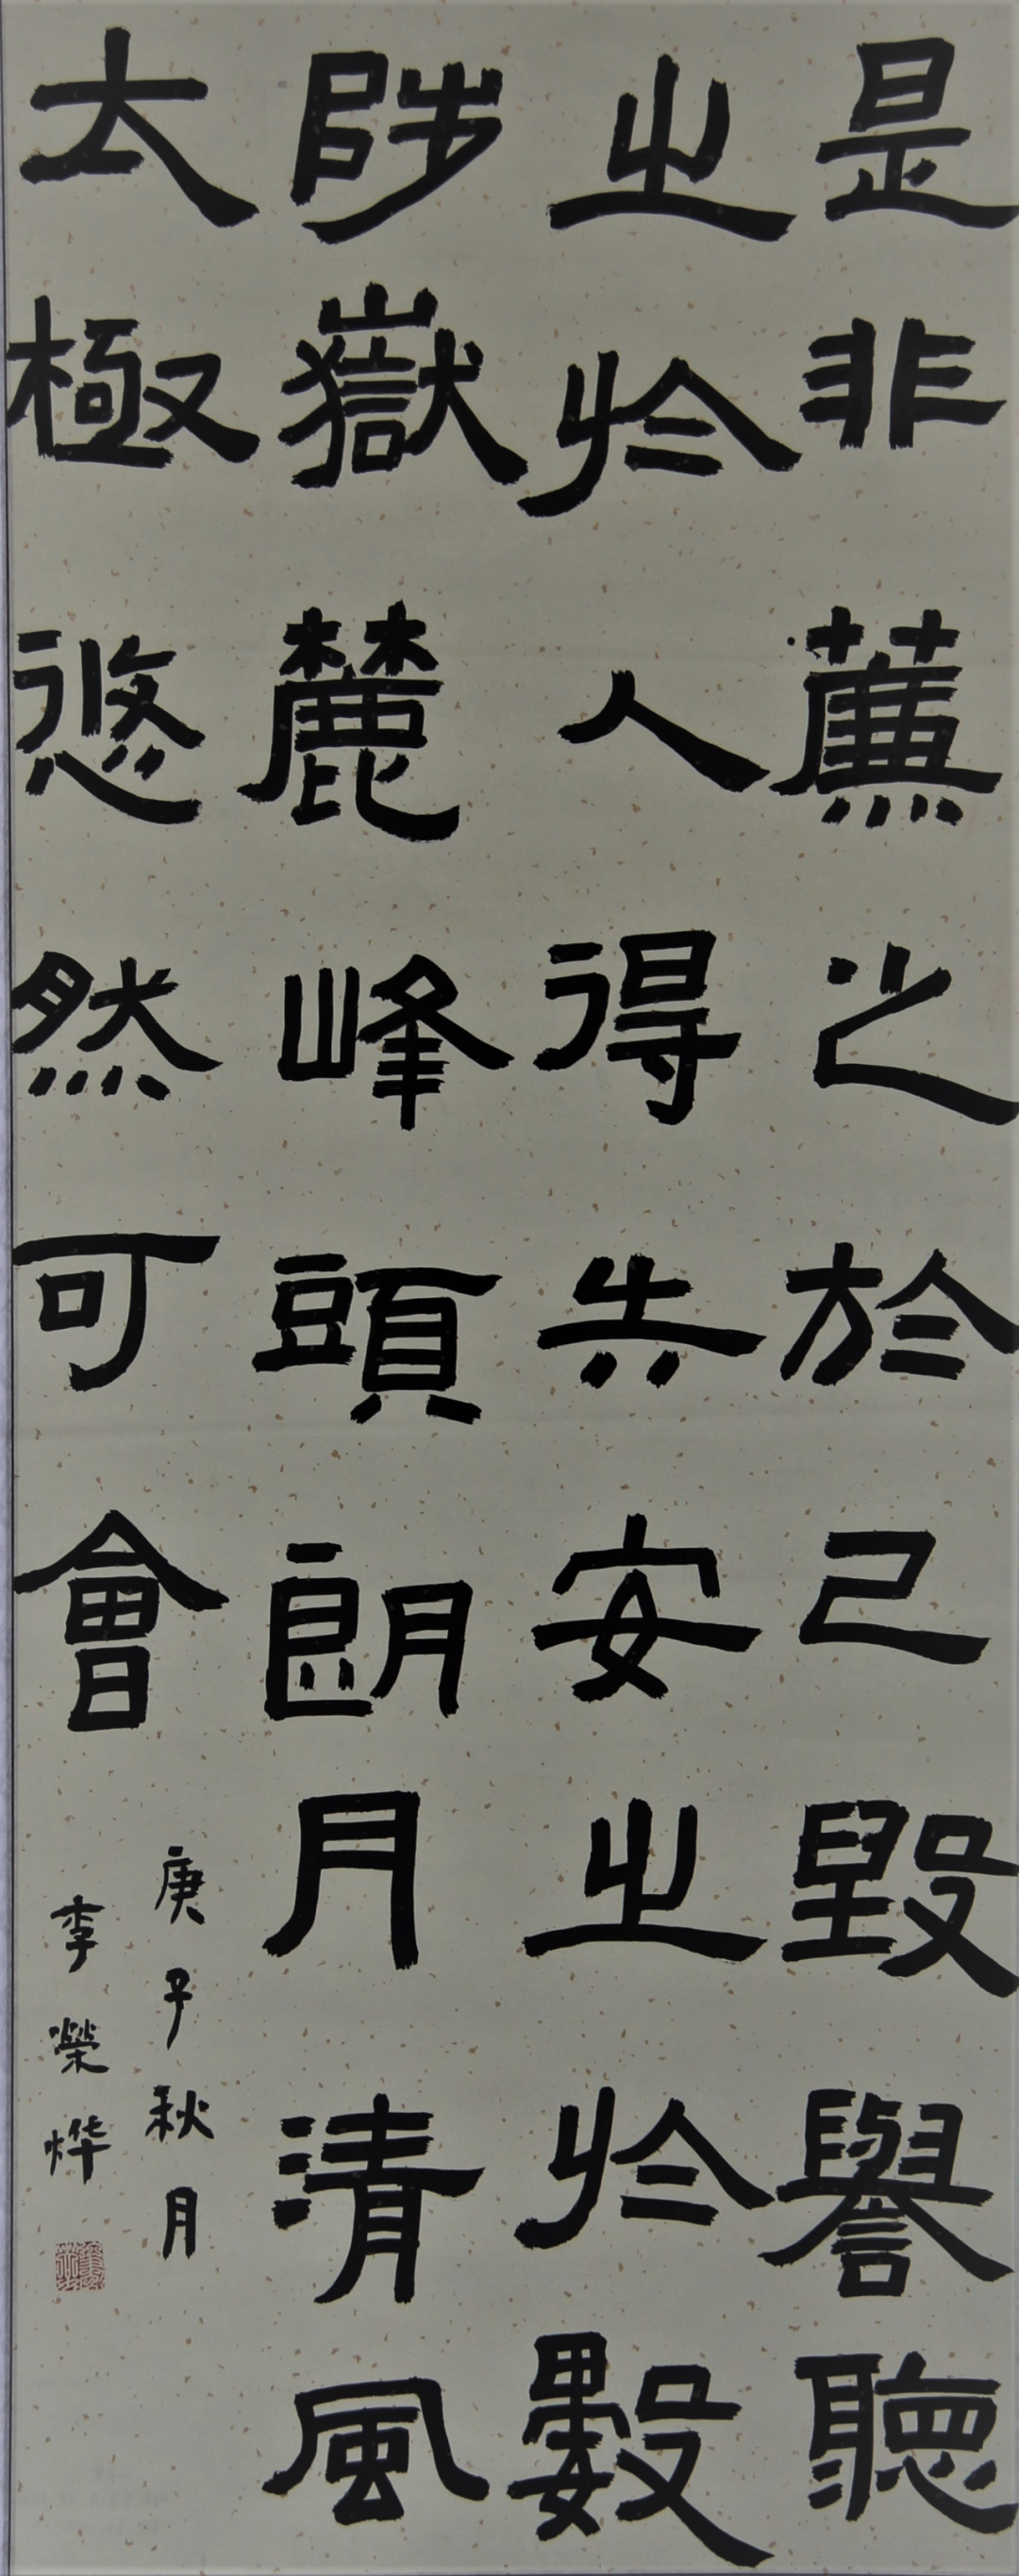 是非薕之於己毀譽聽
之於人得失安之於數
陟嶽麓峰頭朗月清風
太極悠然可會
庚子秋月
李榮烨